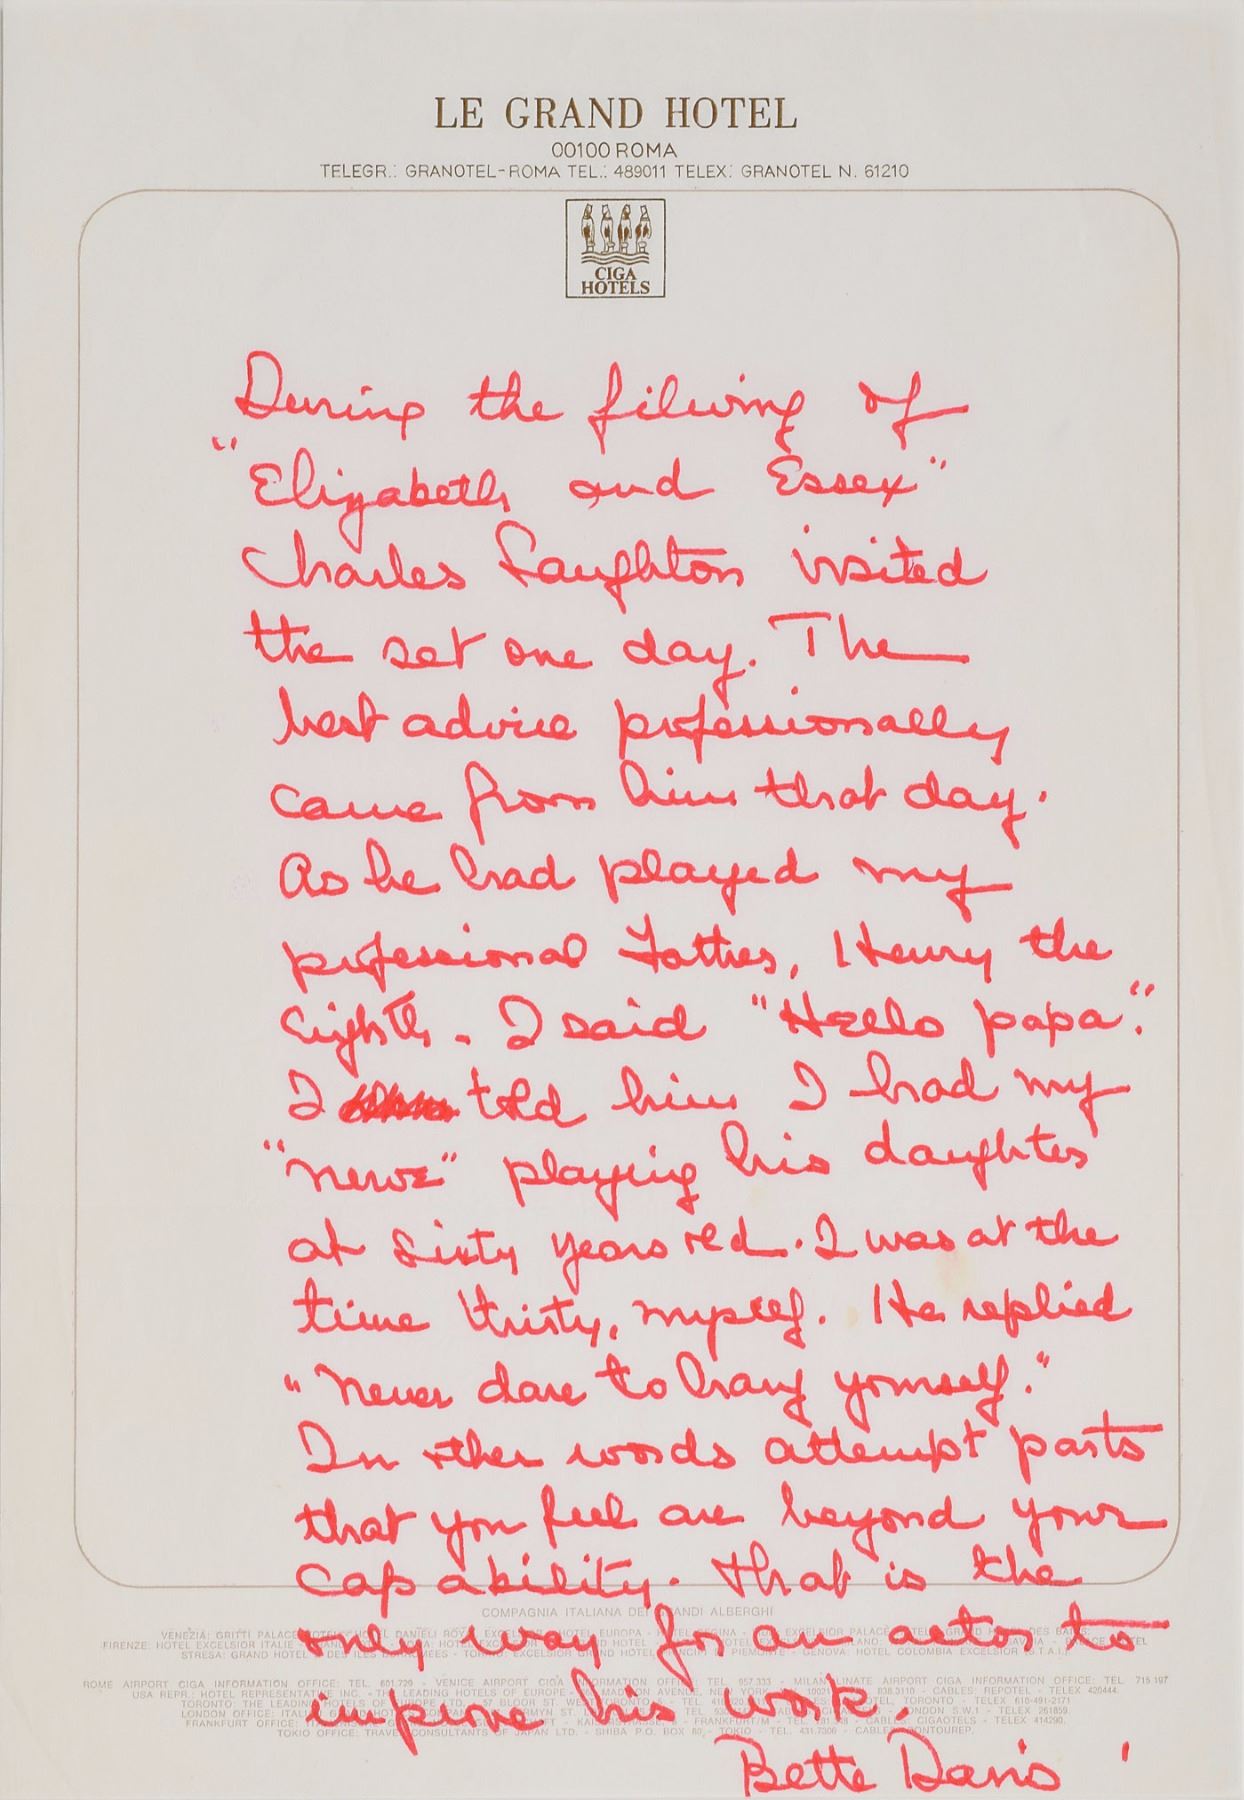 LE GRAND HOTEL
00100 ROMA
TELEGR.: GRANOTEL-ROMA TEL.: 489011 TELEX: GRANOTEL N. 61210
CIGA
HOTELS
During the filming of
"Elizabeth and Essex"
Charles Laughton visited
the set one day. The
best advice professionally
came from him that day.
As he had played my
professional Father, Henry the
Eighth - I said "Hello papa".
I told him I had my
"nerve" playing his daughter
at sixty years old. I was at the
time thirty, myself. He replied
"Never dare to hang yourself."
In other words attempt parts
that you feel are beyond your
capability. That is the
only way for an actor to
improve his work.
Bette Davis
COMPAGNIA ITALIANA DEI GRANDI ALBERGHI
VENEZIA: GRITTI PALACE HOTEL DANIELI ROYAL EXCELSIOR HOTEL EUROPA
FIRENZE: HOTEL EXCELSIOR ITALIE GRAND HOTEL HOTEL COLOMBIA EXCELSIOR (S.T.A.I.)
STRESA: GRAND HOTEL DES ILES BORROMEES
ROME AIRPORT CIGA INFORMATION OFFICE: TEL. 601.720 - VENICE AIRPORT CIGA INFORMATION OFFICE: TEL. 957.333 - MILAN LINATE AIRPORT CIGA INFORMATION OFFICE: TEL 715.197
USA REPR.: HOTEL REPRESENTATIVE INC. - THE LEADING HOTELS OF EUROPE MADISON AVENUE, CABLES: REPOTEL - TELEX 420444
TORONTO: THE LEADING HOTELS OF EUROPE LTD. - 57 BLOOR ST. TORONTO - TELEX 610-491-2171
LONDON OFFICE: LONDON S.W.1 - TELEX 261859
FRANKFURT OFFICE: FRANKFURT/M CABLES CIGAOTELS - TELEX 414290
TOKIO OFFICE: TRAVEL CONSULTANTS OF JAPAN LTD. - SHIBA P.O. BOX 80 - TOKIO - TEL. 431.7306 - CABLES CONTOUREP.